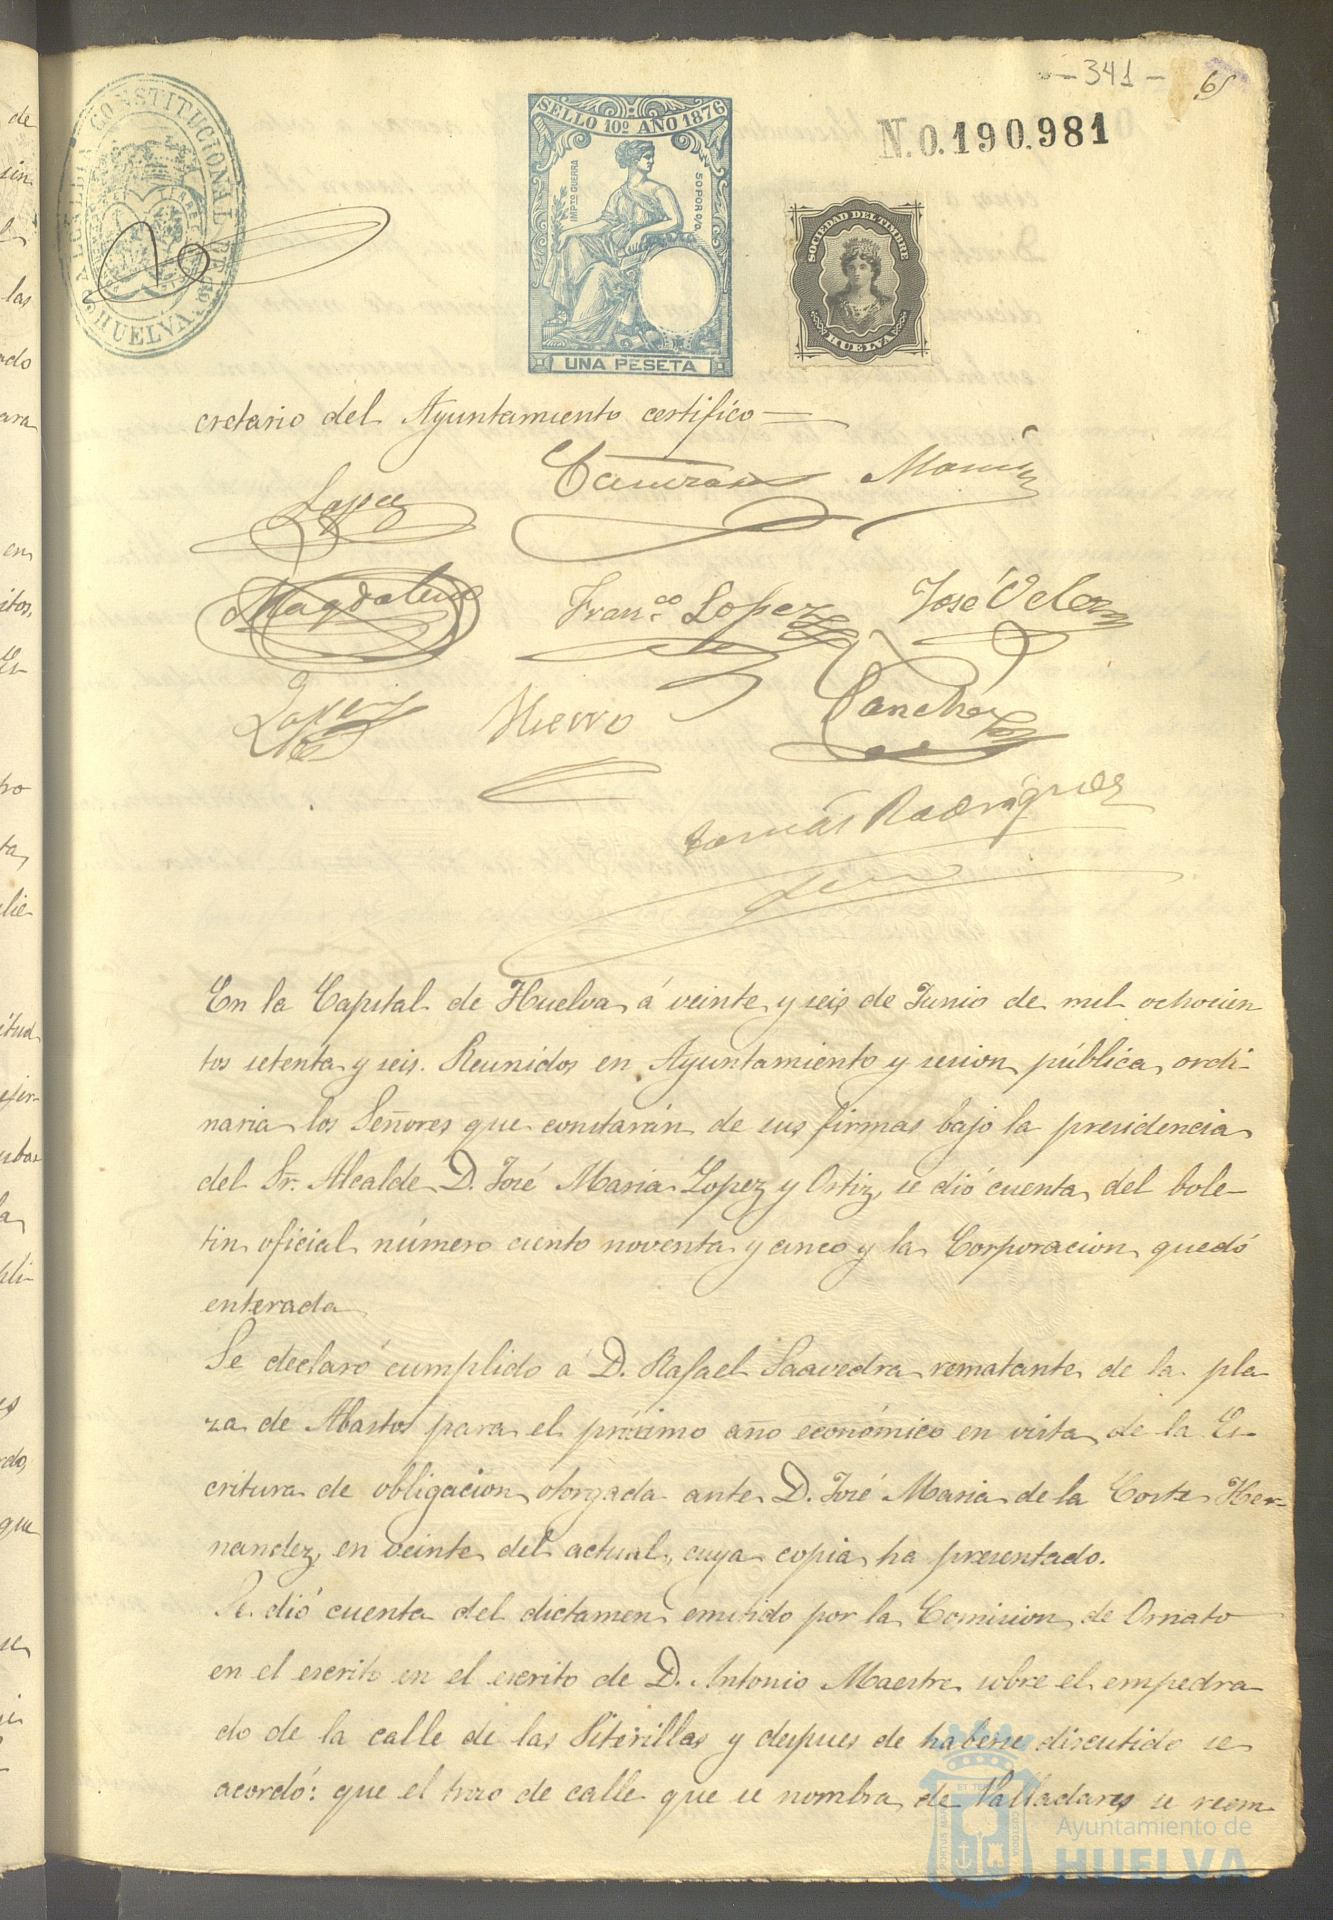 - 341 -
65
ALCALDIA CONSTITUCIONAL DE HUELVA
SELLO 10º AÑO 1876
IMPTO GUERRA
50 POR 0/0
UNA PESETA
N.0.190.981
SOCIEDAD DEL TIMBRE
HUELVA
cretario del Ayuntamiento certifico
Lopez
Magdalena
Franco Lopez
José Velez
Lopez
Hierro
Sanchez
Tomás Rodriguez
En la Capital de Huelva á veinte y seis de Junio de mil ochocien
tos setenta y seis. Reunidos en Ayuntamiento y sesion pública, ordi-
naria los Señores que constarán de sus firmas bajo la presidencia
del Sr. Alcalde D. José Maria Lopez y Ortiz, se dió cuenta del bole-
tin oficial número ciento noventa y cinco y la Corporacion quedó
enterada
Se declaró cumplido á D. Rafael Saavedra rematante de la pla
za de Abastos para el próximo año económico en vista de la Es-
critura de obligacion otorgada ante D. José Maria de la Corte Her-
nandez, en veinte del actual, cuya copia ha presentado.
Se dió cuenta del dictamen emitido por la Comision de Ornato
en el escrito en el escrito de D. Antonio Maestre sobre el empedra-
do de la calle de las Siterillas y despues de haberse discutido se
acordó: que el trozo de calle que se nombra de Valladares se reem
Ayuntamiento de
HUELVA